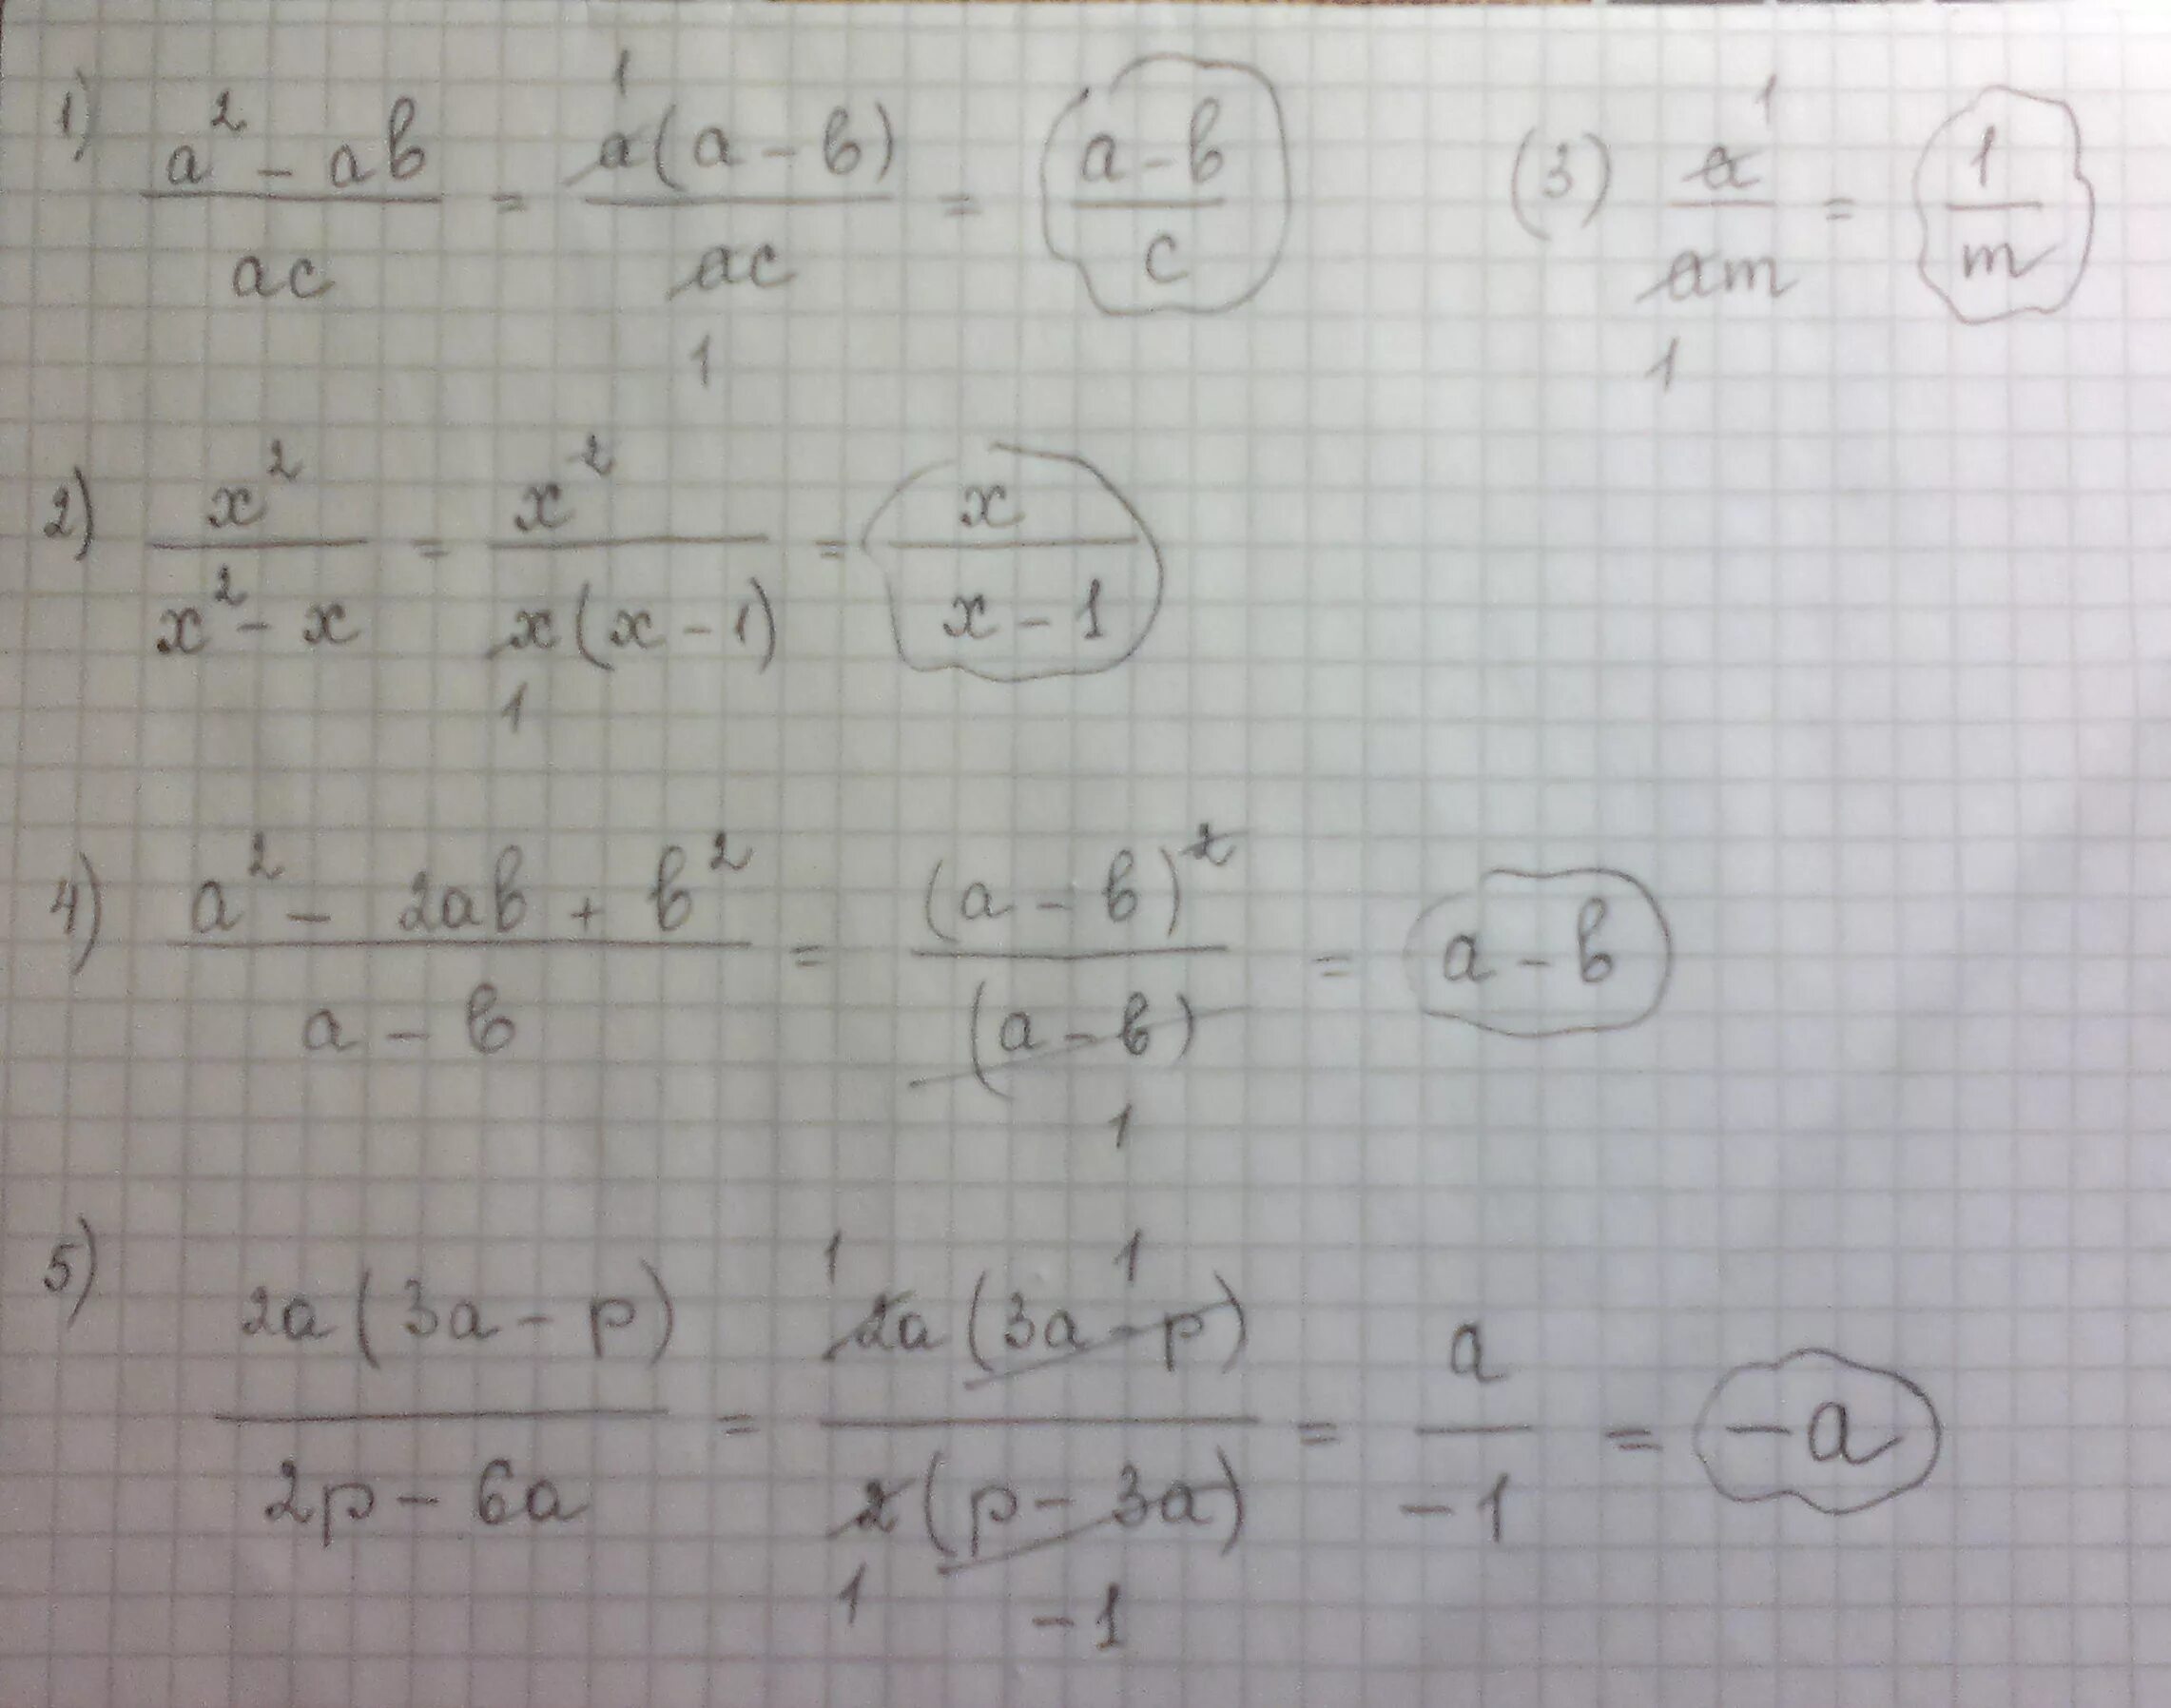 1) (a² - ab)/(ac) = (a(a - b))/(ac) = (a - b)/c
1
1
(3) a/(am) = 1/m
1
1
2) x²/(x² - x) = x²/(x(x - 1)) = x/(x - 1)
1
4) (a² - 2ab + b²)/(a - b) = (a - b)²/(a - b) = a - b
1
5) (2a(3a - p))/(2p - 6a) = (2a(3a - p))/(2(p - 3a)) = a/(-1) = -a
1 1
1 -1